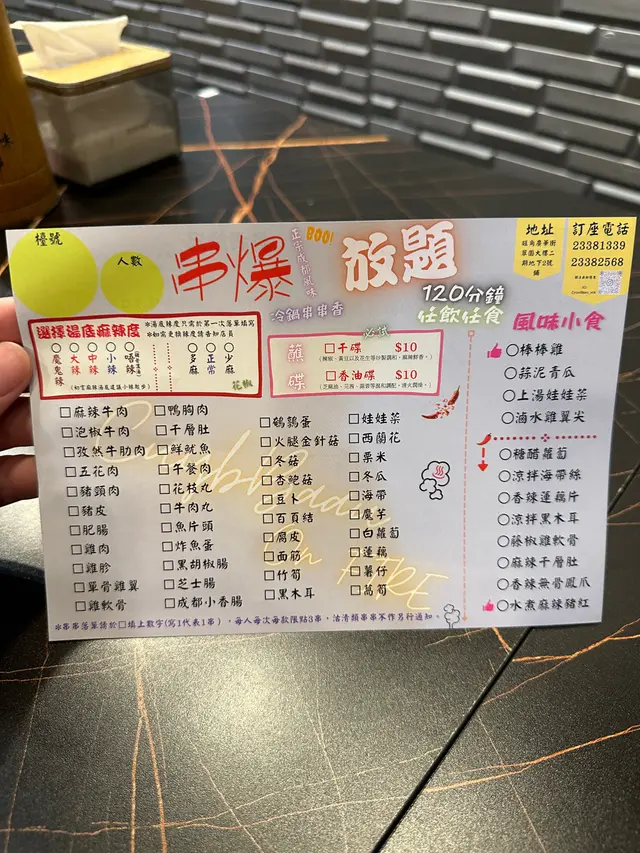 檯號
人數
串爆
正宗成都風味
BOO!
冷鍋串串香
放題
120分鐘
任飲任食
地址
旺角廣華街
翠園大樓二
期地下2號
舖
訂座電話
23381339
23382568
選擇湯底麻辣度
*湯底辣度只需於第一次落單填寫
*如需更換辣度請告知店員
○魔鬼辣
○大辣
○中辣
○小辣
○唔辣
○多麻
○正常
○少麻
花椒
(初嘗麻辣湯底建議小辣起步)
蘸碟
必試
□干碟 $10
□香油碟 $10
□麻辣牛肉
□泡椒牛肉
□孜然牛肋肉
□五花肉
□豬頸肉
□豬皮
□肥腸
□雞肉
□雞胗
□單骨雞翼
□雞軟骨
□鴨胸肉
□干層肚
□鮮魷魚
□午餐肉
□花枝丸
□牛肉丸
□魚片頭
□炸魚蛋
□黑胡椒腸
□芝士腸
□成都小香腸
□鵪鶉蛋
□火腿金針菇
□冬菇
□杏鮑菇
□豆卜
□百頁結
□腐皮
□面筋
□竹筍
□黑木耳
□娃娃菜
□西蘭花
□粟米
□冬瓜
□海帶
□魔芋
□白蘿蔔
□蓮藕
□薯仔
□萵筍
風味小食
○棒棒雞
○蒜泥青瓜
○上湯娃娃菜
○滷水雞翼尖
○糖醋蘿蔔
○涼拌海帶絲
○香辣蓮藕片
○涼拌黑木耳
○藤椒雞軟骨
○麻辣干層肚
○香辣無骨鳳爪
○水煮麻辣豬紅
*串串落單請於□填上數字(寫1代表1串)，每人每次每款限點3串，沽清類串串不作另行通知。